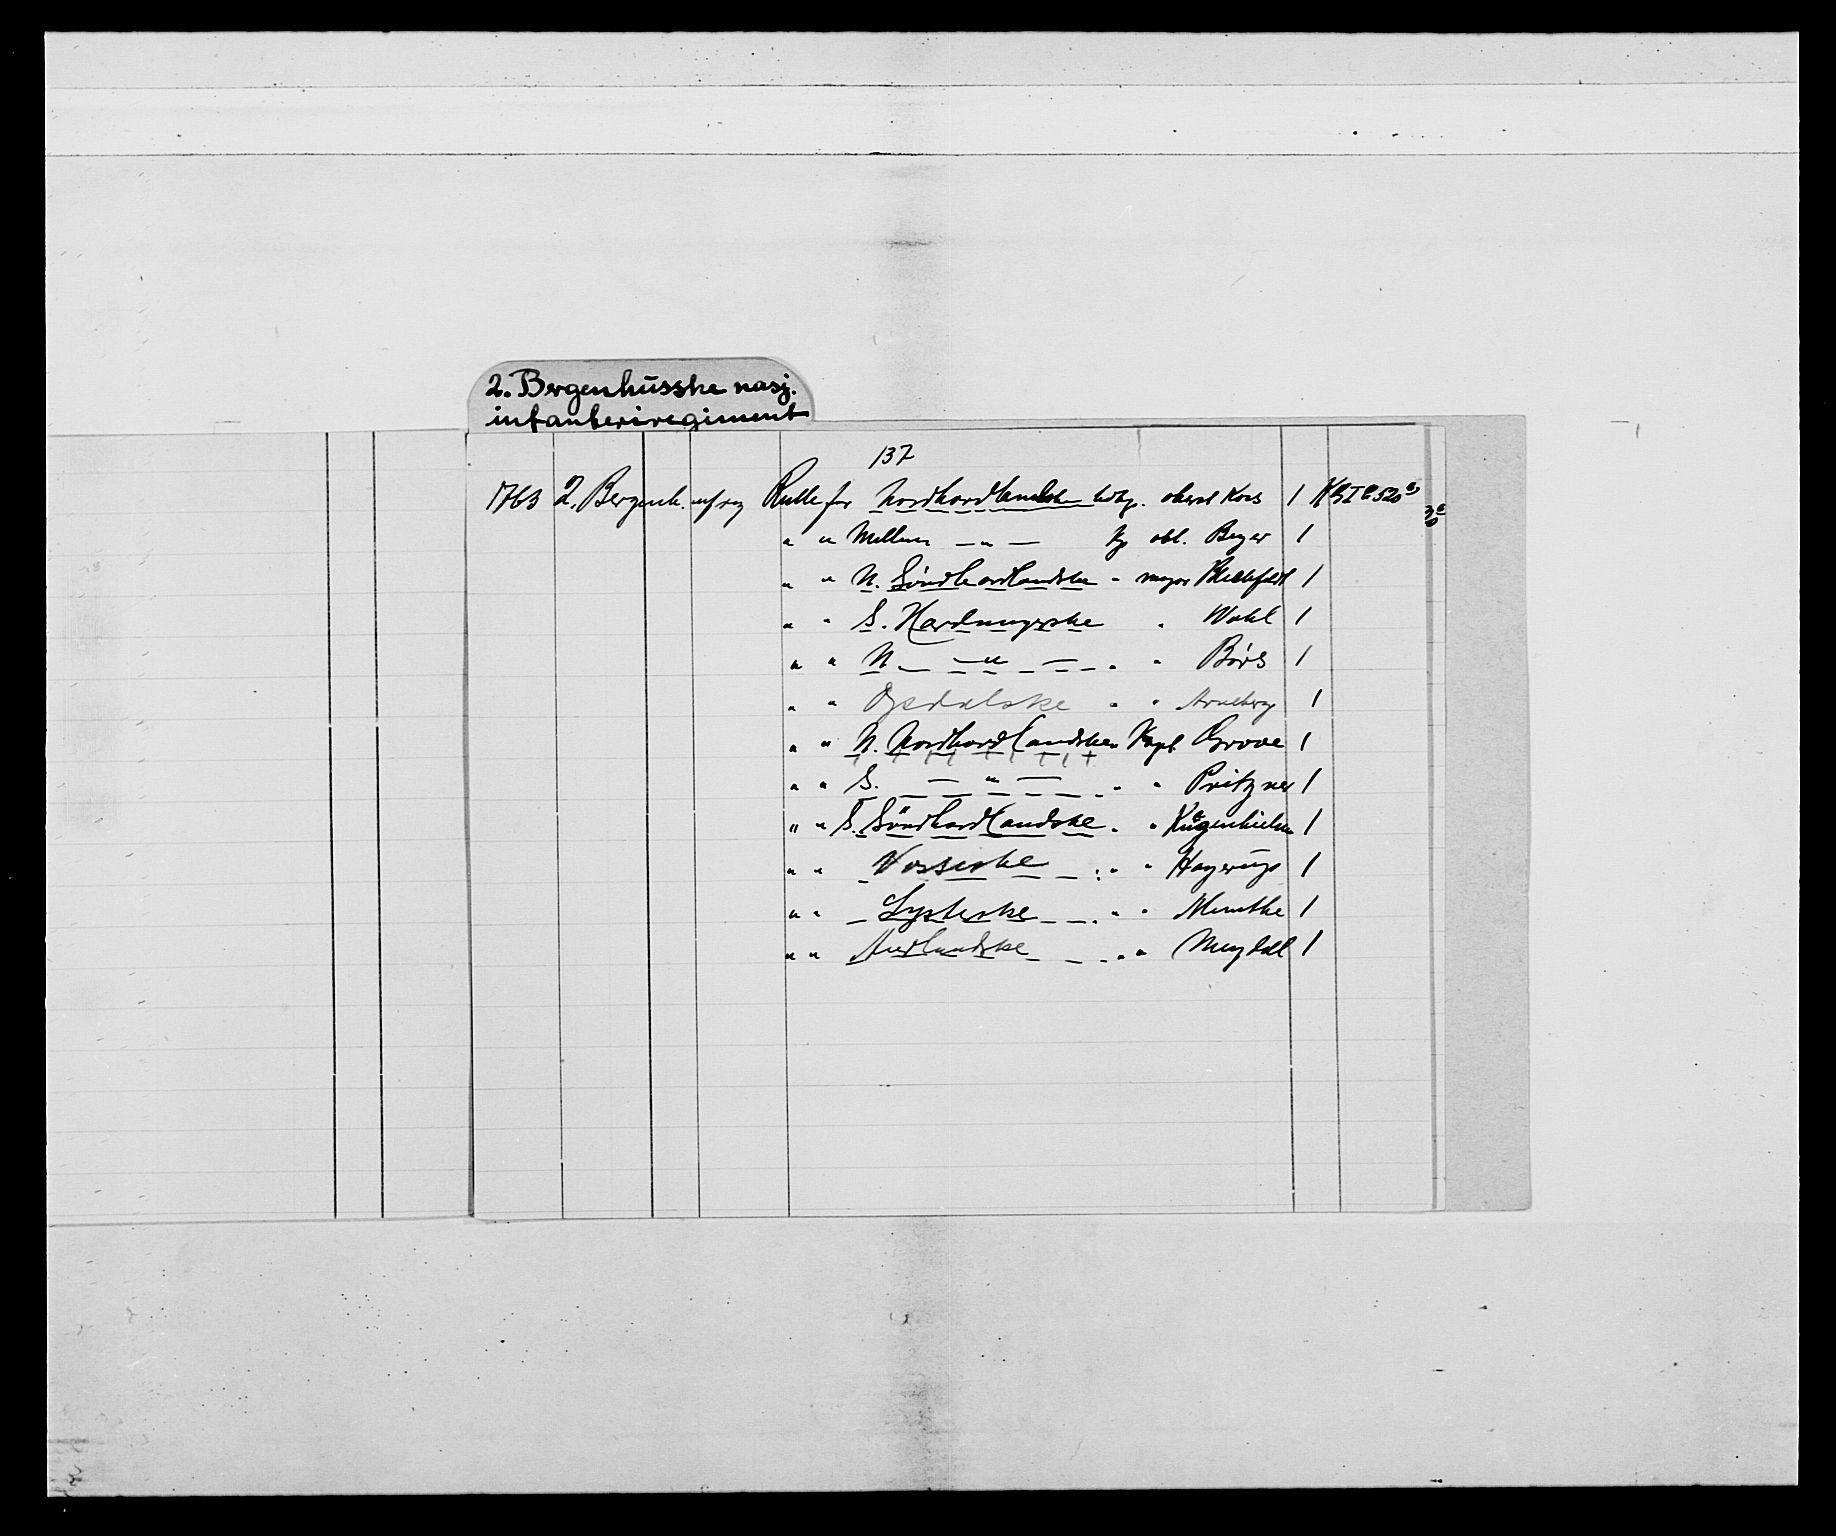 2. Bergenhūsske nasj.
infanteriregiment
137
1763 2. Bergenh. inf reg Rulle for Nordhordlandske livkp. oberst Kors 1
" " Mellem — " — kp obl. Beyer 1
" " N. Söndhordlandske " major Blechfeldt 1
" " S. Hardangerske " Wohl 1
" " N. — " — " " Börs 1
" " Opdalske " " Arneberg 1
" " N. Nordhordlandske " Kapt Grove 1
" " S. — " — " " Pritzner 1
" " S. Söndhordlandske " " 1
" " Vossiske " " Hagerup 1
" " Lysterske " " Munthe 1
" " Aurlandske " " Mugdal 1